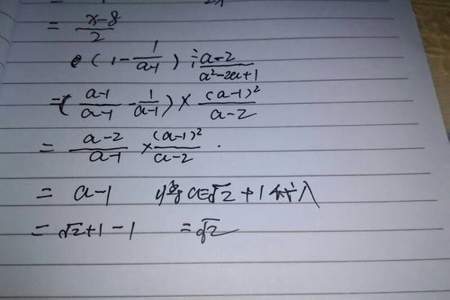 = x-8/2
(1 - 1/a-1) ÷ a-2/a²-2a+1
=(a-1/a-1 - 1/a-1) × (a-1)²/a-2
= a-2/a-1 × (a-1)²/a-2
= a-1 将a=√2+1代入
= √2+1-1 =√2